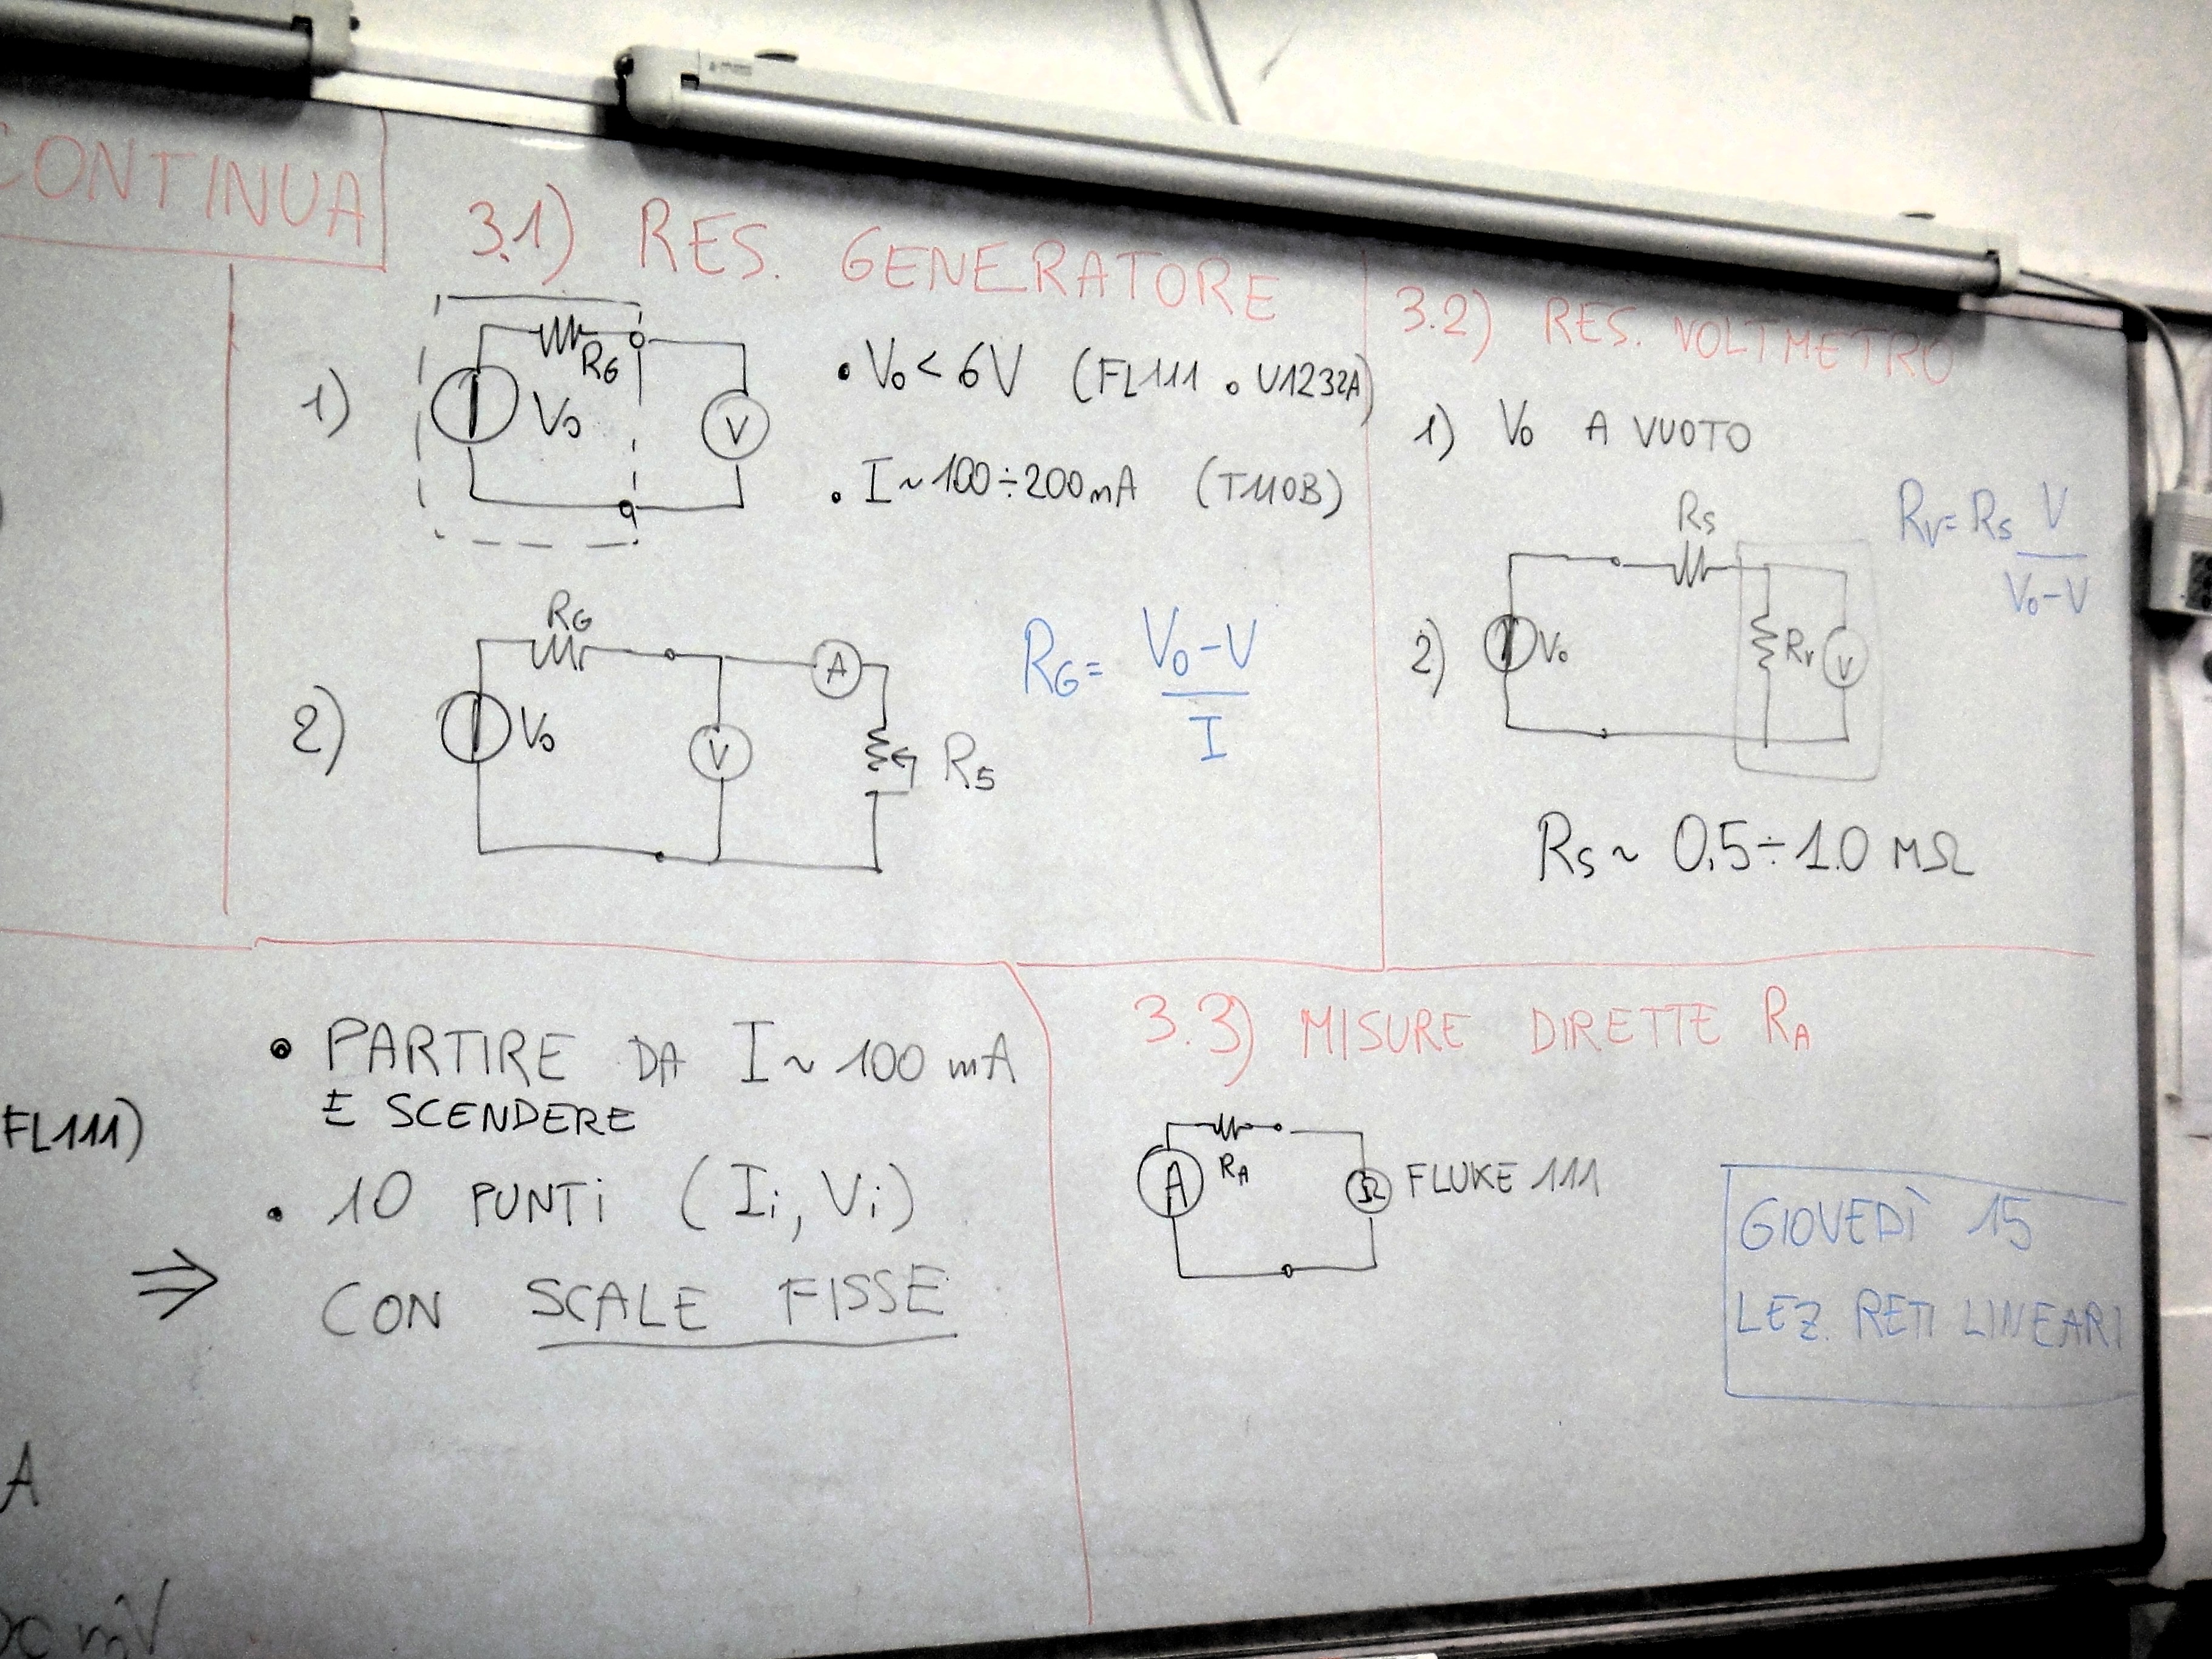 CONTINUA
3.1) RES. GENERATORE
1)
RG
V0
V
• V0 < 6V (FL111 o U1232A)
• I ~ 100÷200mA (T110B)
2)
RG
V0
V
A
RS
RG = V0-V
I
3.2) RES. VOLTMETRO
1) V0 A VUOTO
2)
RS
V0
RV
V
RV = RS V
V0-V
RS ~ 0.5÷1.0 MΩ
FL111)
• PARTIRE DA I ~ 100 mA
E SCENDERE
• 10 PUNTI (Ii, Vi)
⇒ CON SCALE FISSE
A
mV
3.3) MISURE DIRETTE RA
A
RA
Ω
FLUKE 111
GIOVEDÌ 15
LEZ. RETI LINEARI